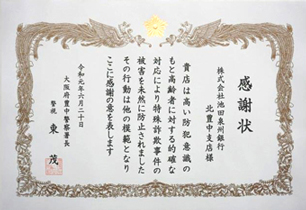 感謝状
株式会社池田泉州銀行
北豊中支店様
貴店は高い防犯意識の
もと高齢者に対する的確な
対応により特殊詐欺事件の
被害を未然に防止されました
その行動は他の模範となり
ここに感謝の意を表します
令和元年六月二十日
大阪府豊中警察署長
警視 東 茂